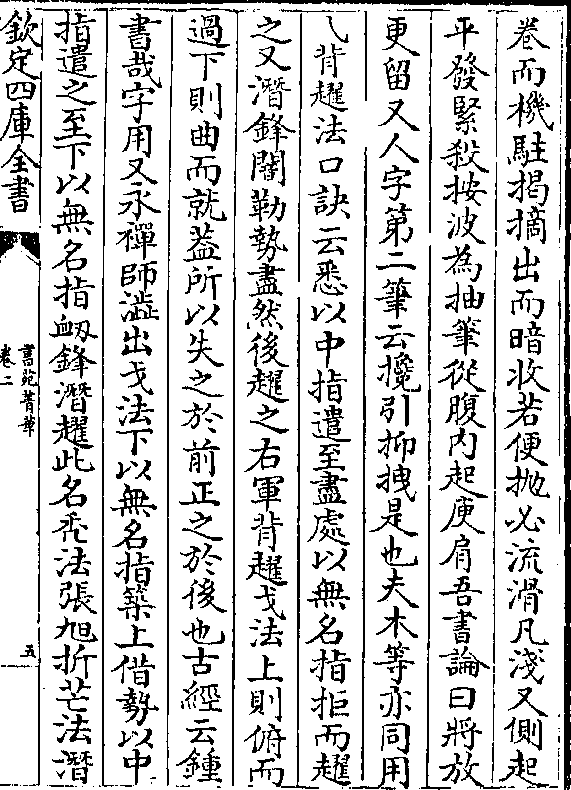 卷而機駐揭摘出而暗收若便抛必流滑凡淺又側起
平發緊殺按波為抽筆從腹内起庾肩吾書論曰將放
更留又人字第二筆云攙引抑拽是也夫木等亦同用
乀背趯法口訣云悉以中指遣至盡處以無名指拒而趯
之又潛鋒闇勒勢盡然後趯之右軍背趯戈法上則俯而
過下則曲而就蓋所以失之於前正之於後也古經云鍾
書哉字用又永禪師澁出戈法下以無名指築上借勢以中
指遣之至下以無名指衂鋒潛趯此名秃法張旭折芒法潛
欽定四庫全書
書苑菁華
卷二
五